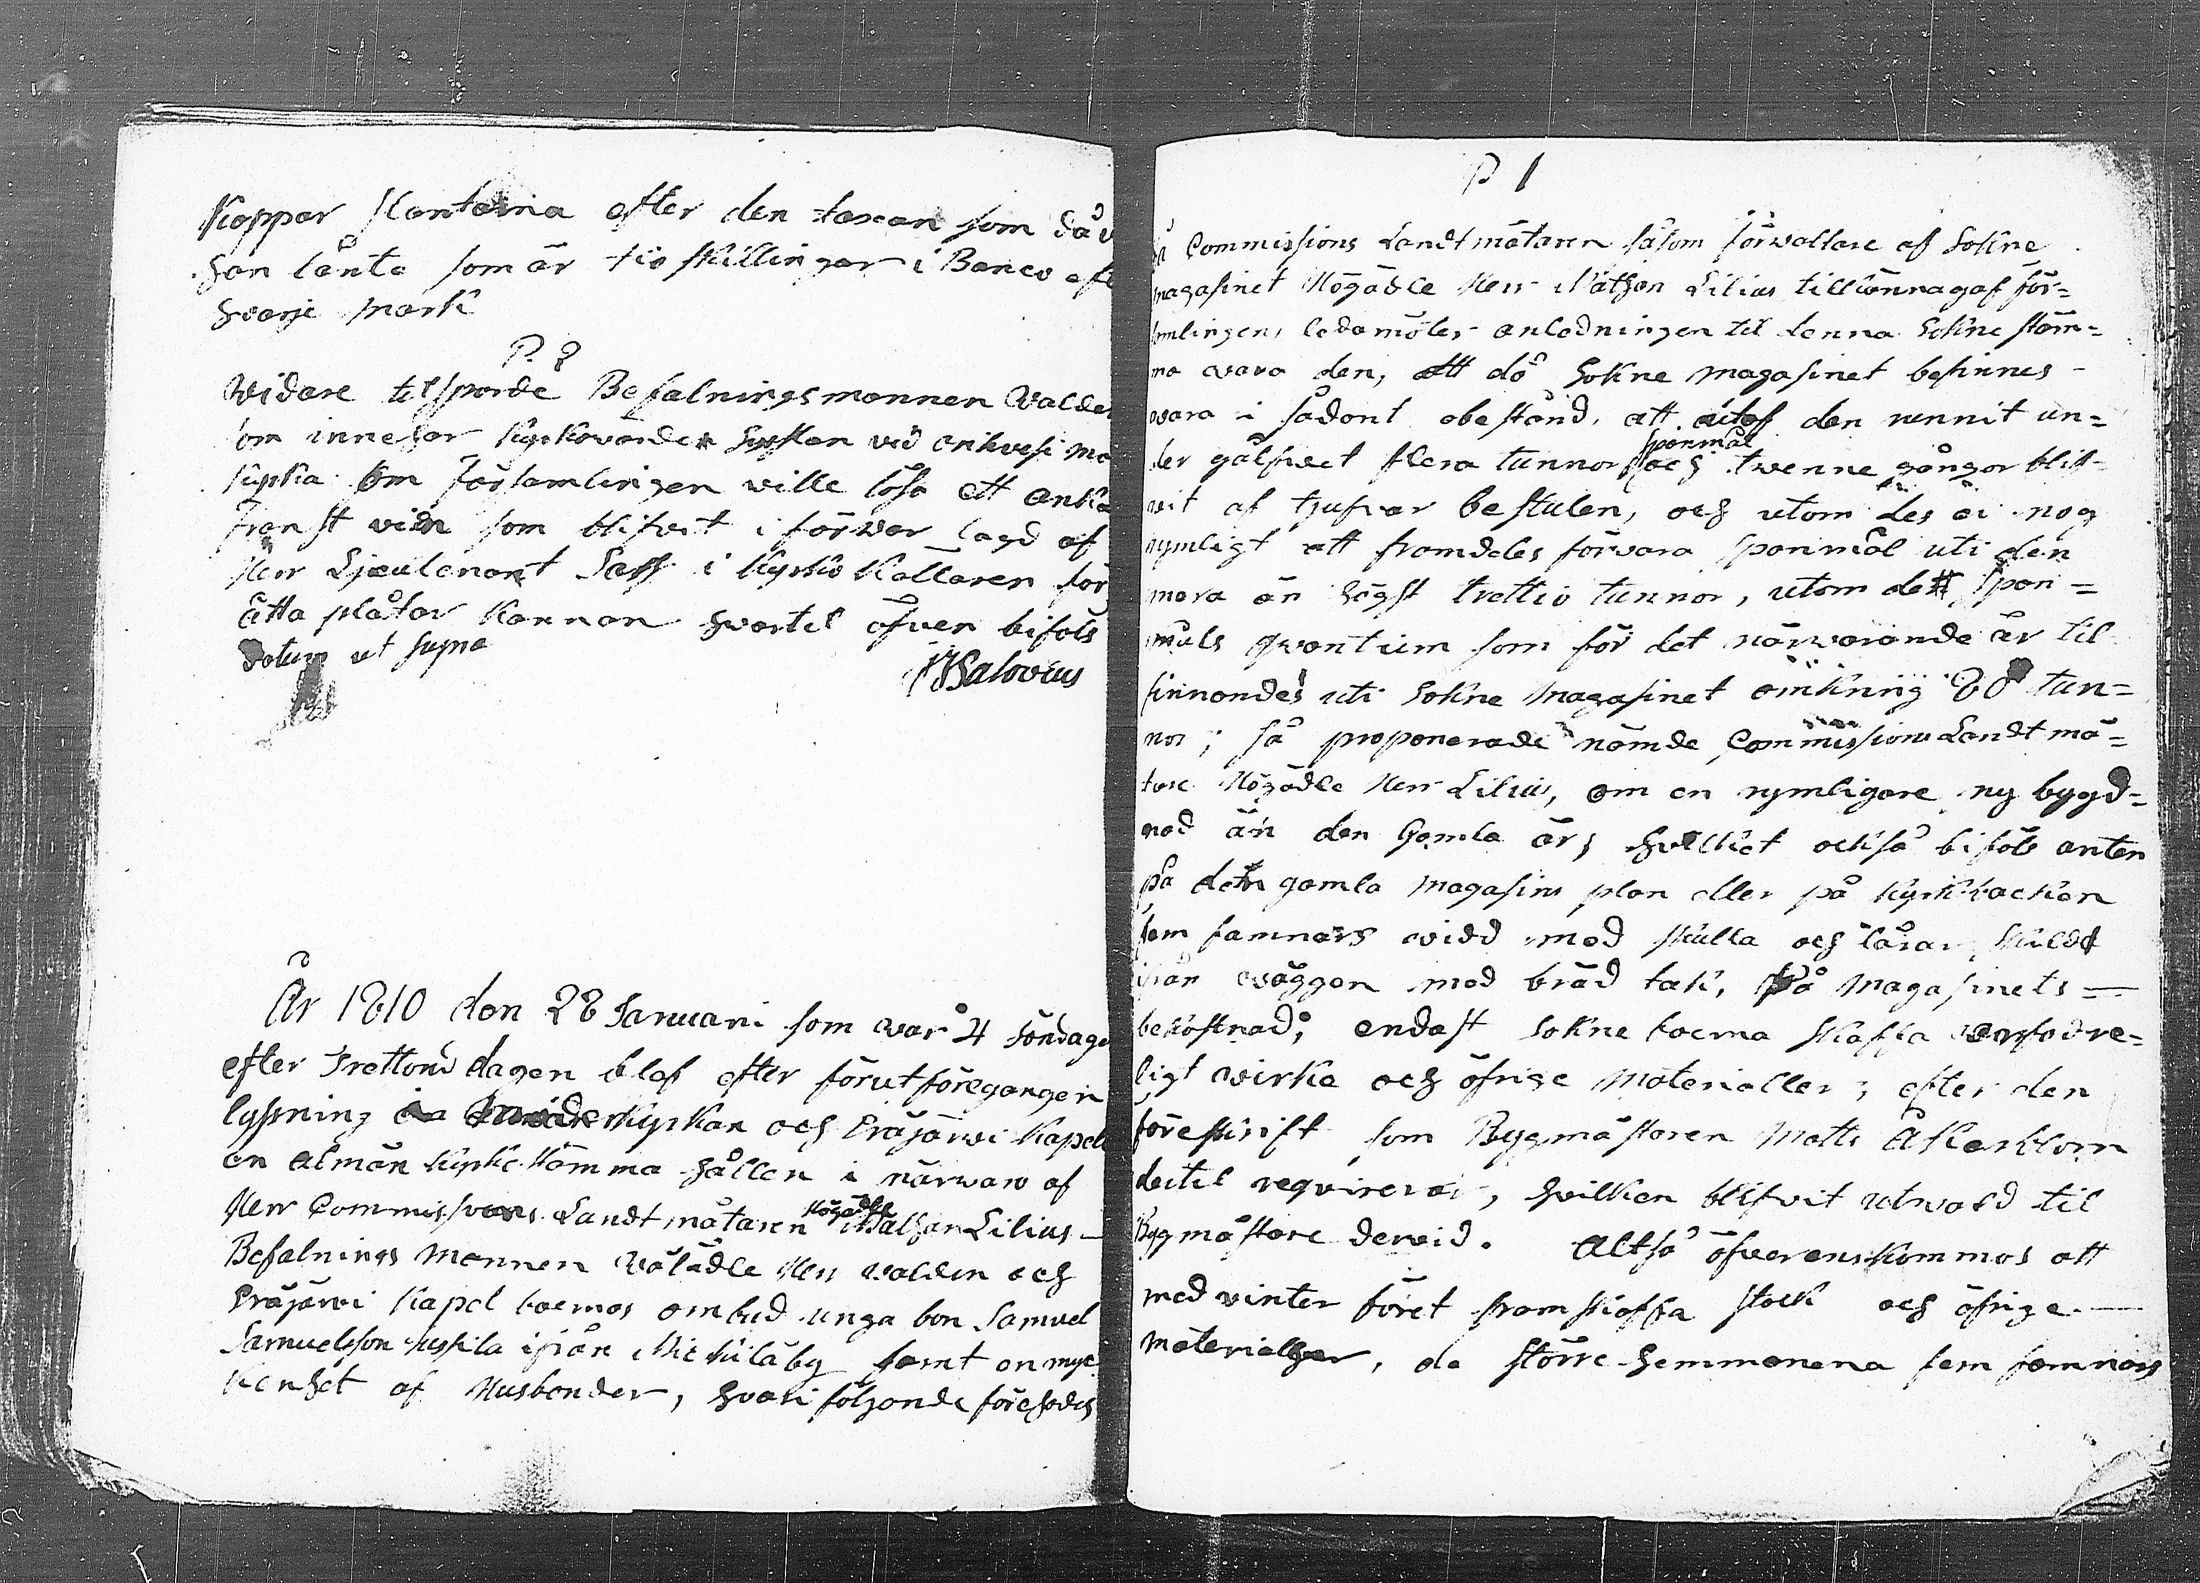 Koppar slantarna efter den taxan som då v
han lånte som är tio skillingar i Banco eft
hvarje mark
P. 8
Widare tilsporde Befalningsmannen Walde
som innehar kyrkovärde sysslan vid Orihvesi mo
kyrka om Församlingen wille lösa ett anka
franst vin som blifvit i förwar lagd af
Herr Ljeutenant Sass i Kyrko Kallaren för
åtta plåtar kannan hvartil äfven bifols
Datum ut supra
Salovius
År 1810 den 28 Januari som war 4 söndage
efter Trettondagen blef efter förut föregangen
lysning kyrkan och Eräjärwi Kapell
en alman kyrko stämma hållen i närwaro af
Herr Commissions Landtmätaren Högädle Mathan Lilius
Befalnings mannen Wälädle Herr walden och
Eräjärwi Kapel boernas ombud unga bon Samuel
Samuelsson Uskila ifrån Mickiläby samt en myc
kenhet af Husbonder, hvari följande förehades
P 1
så Commissions Landtmätaren såsom förwaltare af Sokne
magasinet Högädle Herr Mathan Lilius tillkännagaf för=
samlingens ledamöter anledningen til denna Sokne stäm=
ma wara den, att då Sokne magasinet befinnes
wara i sådant obestånd, att utaf den runnit un=
der gålfwet flera tunnor spanmål och twenne gångor blif=
wit af tjufvar bestulen, och utom des ei nog
rymligt att framdeles förwara spanmål uti den
mera än högst trettio tunnor, utom det span=
måls qwantum som för det närwarande är til
finnandes uti Sokne magasinet omkring 80 tun=
nor; så proponerade nämde Commissions Landtmä=
tare Högädle Herr Lilius, om en rymligare ny bygd=
nad än den Gamla är, hvilket också bifols anten
på den gamla magasins plan eller på kyrkbacken
fem famnars widd med skulla och lårar skildt
ifrån wäggen med bräd tak, på Magasinets
bekostnad, endast Sokne boerna skaffa erfordre=
ligt wirke och öfrige materialler, efter den
föreskrift som Bygmästaren Matts Åkerblom
dertil requirerar, hvilken blifvit utwald til
Bygmästare derwid. Altså öfverenskommos att
med vinter föret framskaffa stock och öfrige
materialler, de större hemmanena fem famnars